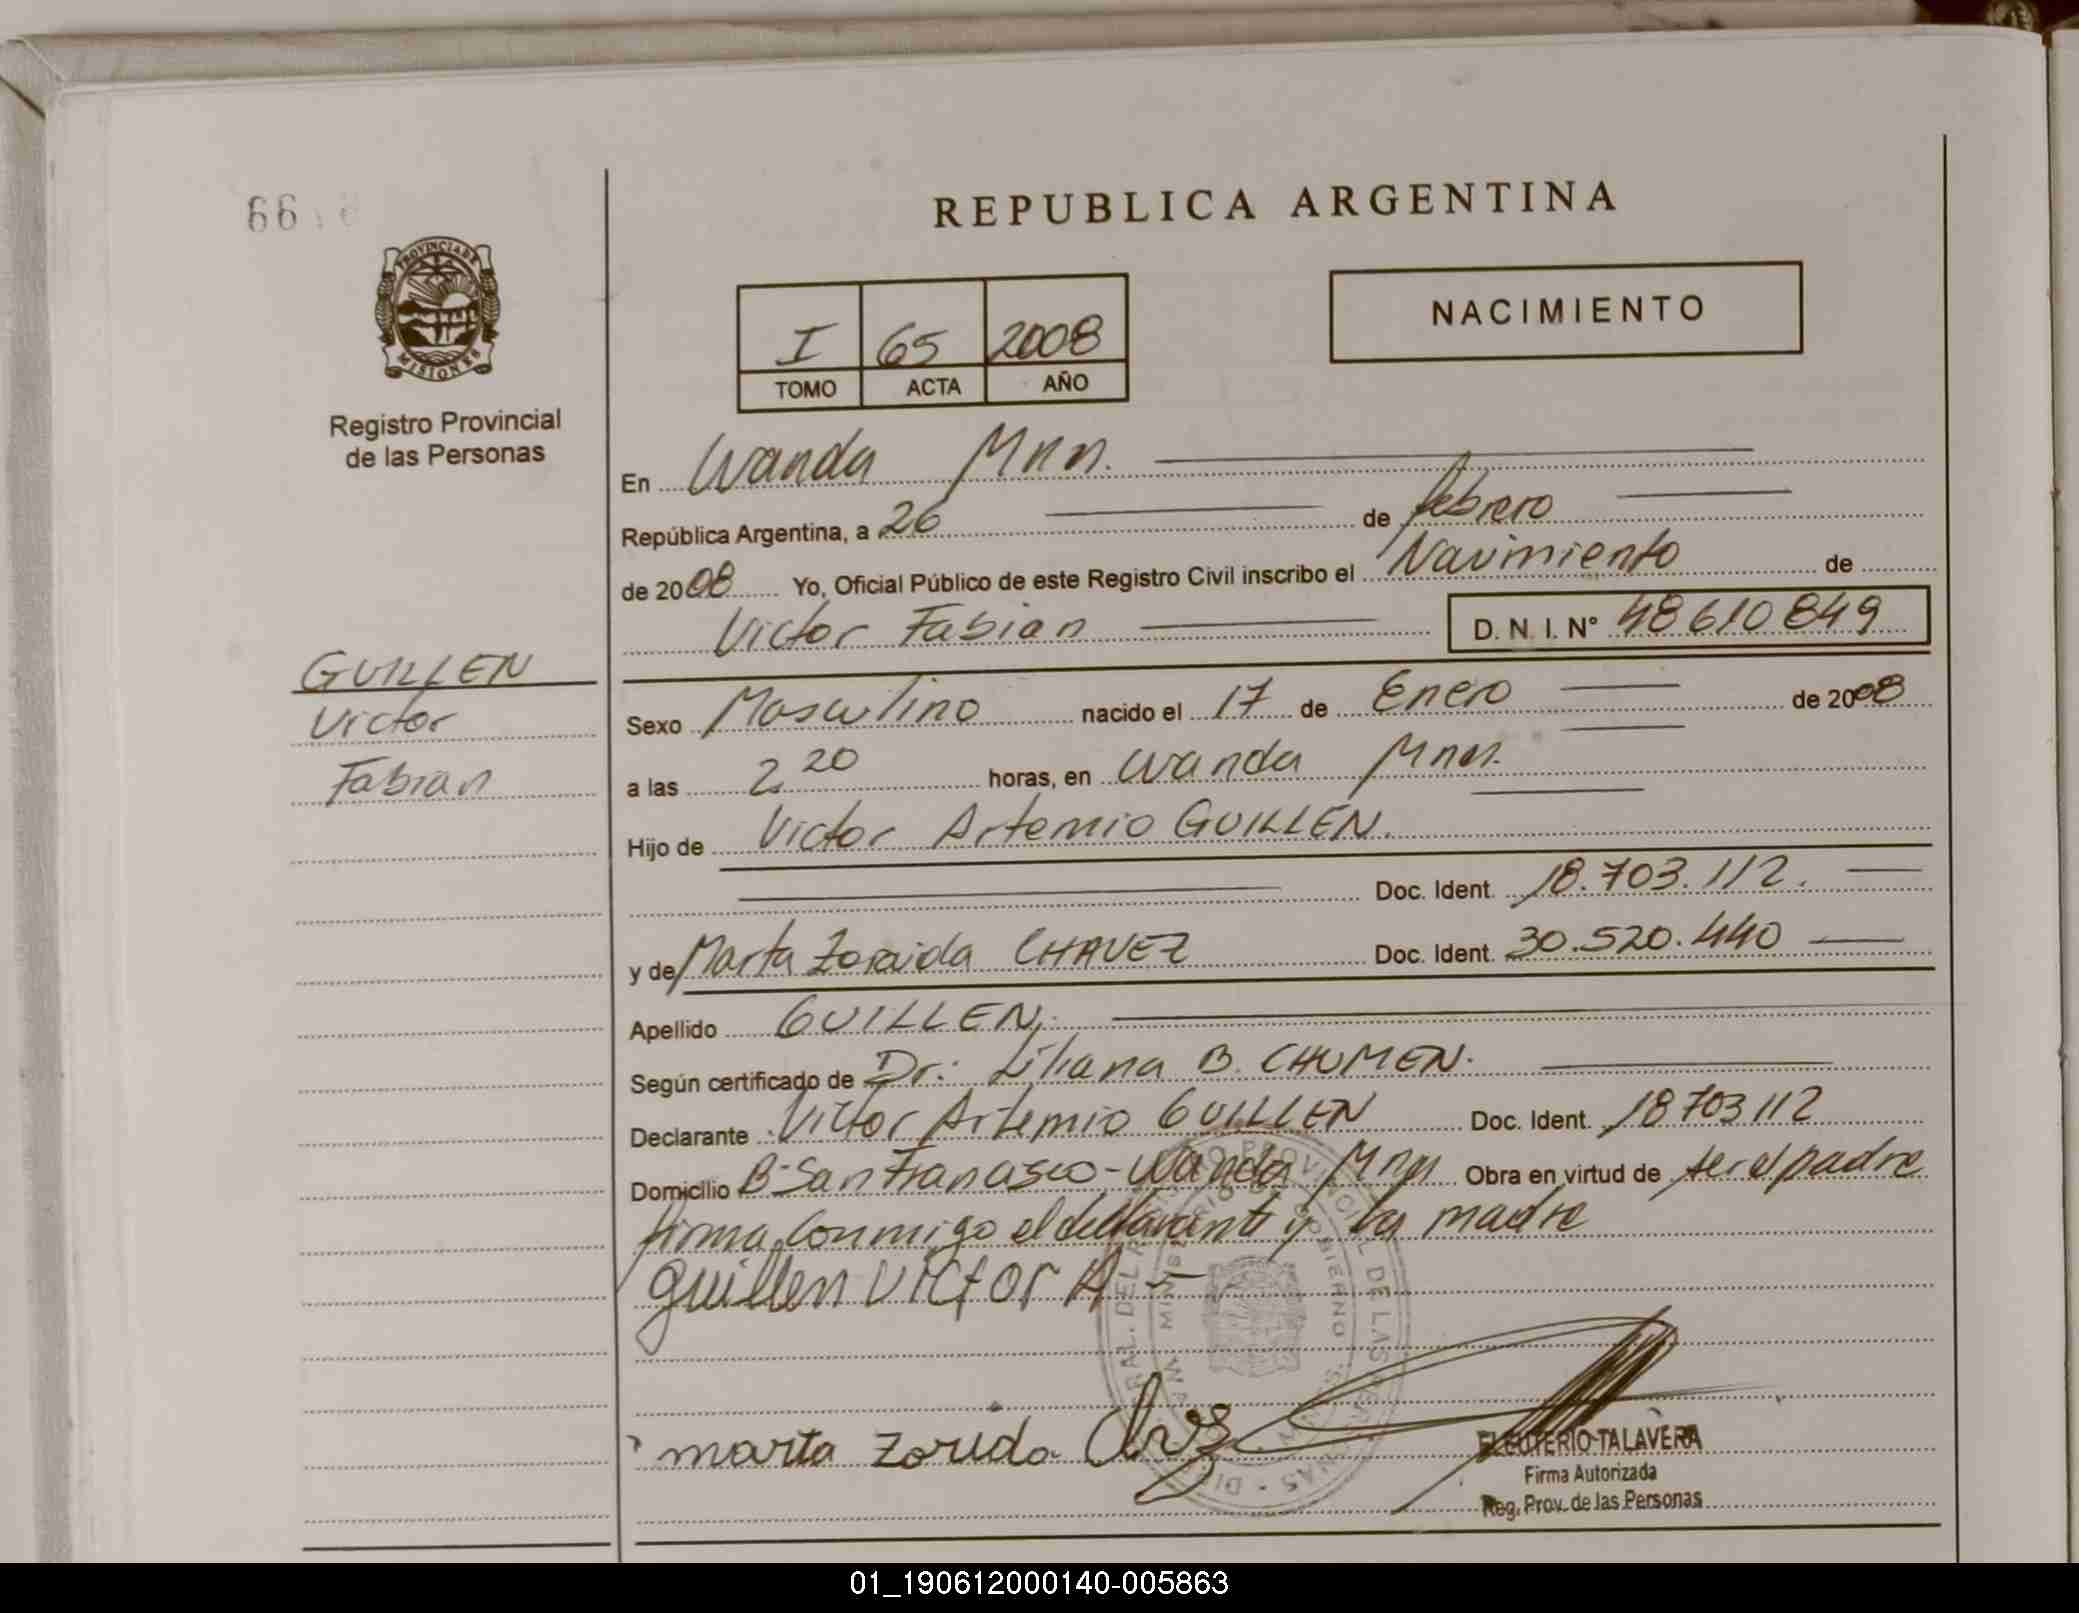 66
PROVINCIA DE
MISIONES
Registro Provincial
de las Personas
GUILLEN
Victor
Fabian
REPUBLICA ARGENTINA
I 65 2008
TOMO ACTA AÑO
NACIMIENTO
En Wanda Mnes.
República Argentina, a 26 de febrero
de 2008 Yo, Oficial Público de este Registro Civil inscribo el Nacimiento de
Victor Fabian D. N. I. N° 48610849
Sexo Masculino nacido el 17 de Enero de 2008
a las 2 20 horas, en Wanda Mnes.
Hijo de Victor Artemio GUILLEN.
Doc. Ident. 18.703.112.
y de Marta Zoraida CHAVEZ Doc. Ident. 30.520.440
Apellido GUILLEN,
Según certificado de Dr: Liliana B. CHUMEN.
Declarante Victor Artemio GUILLEN Doc. Ident. 18703112
Domicilio B- San Francisco - Wanda Mnes Obra en virtud de ser el padre
firma conmigo el declarante y la madre
guillen VICTOR A
marta zorida
ELEUTERIO TALAVERA
Firma Autorizada
Reg. Prov. de las Personas
01_190612000140-005863